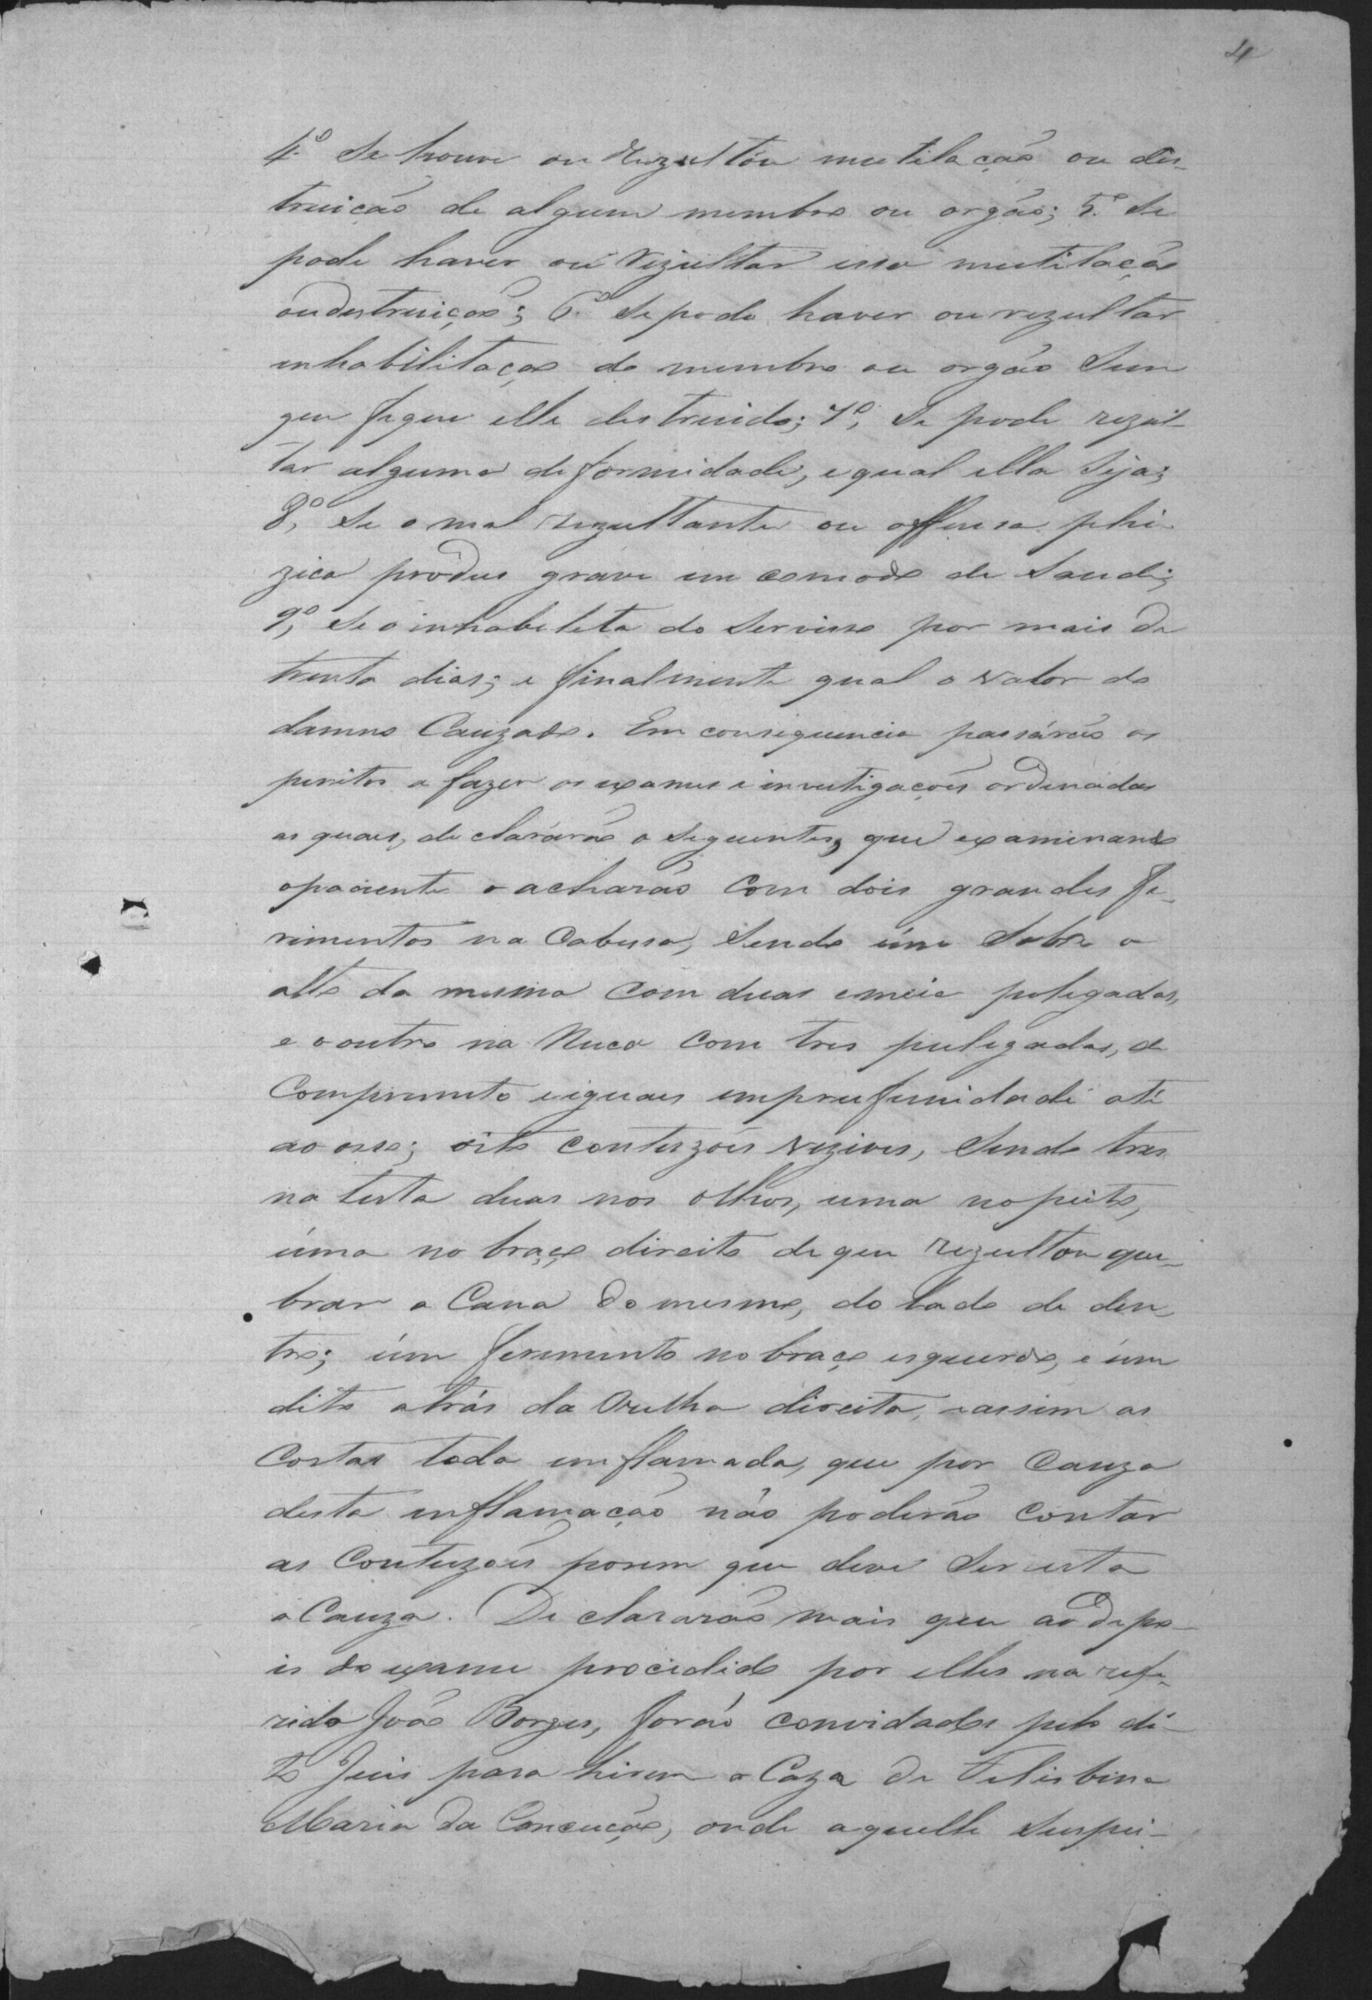 4
4º Se houve ou rezultou mutilação ou des-
truicão de algum membro ou orgão; 5º Se
pode haver ou rezultar essa mutilação
oudestruição; 6º Se pode haver ou rezultar
inhabilitação do membro ou orgão Sem
que fique elle destruido; 7º, Se pode rezul-
tar alguma deformidade, equal ella Seja;
8º, Se o mal rezultante ou offensa phi-
zica produs grave incomodo de Saude;
9º, Se o inhabelita do Servisso por mais de
trenta dias; e finalmente qual o valor do
damno Cauzado. Em consiquencia passárão os
peritos a fazer os exames e investigações ordenadas
as quaes, declararão o Seguentes, que examinando
opaciente o acharão Com dois grandes fe-
rimentos na Cabessa, Sendo úm Sobre o
alto da mesma Com duas emeia polegadas,
e o outro na Nuca Com tres pulegadas, de
Comprimento eiguaes emprufunidade até
ao osso; oito contuzões vezives, Sendo tres
na testa duas nos olhos, uma nopeito,
úma no braço direito de que rezultou que-
brar a Cana do mesmo, do lado de den-
tro; úm ferimento no braço esquerdo, e úm
dito atrás da Orelha direita, e assim as
Costas toda imflamada, que por Cauza
desta inflamação não poderão Contar
as Contuzões porem que deve Ser esta
a Cauza. Declararão mais que ao depo-
is do exame procedido por elles na refe-
rido João Borges, forão convidados pelo di-
to Juis para hirem a Caza de Felisbina
Maria da Conceição, onde aquelle Suspei-